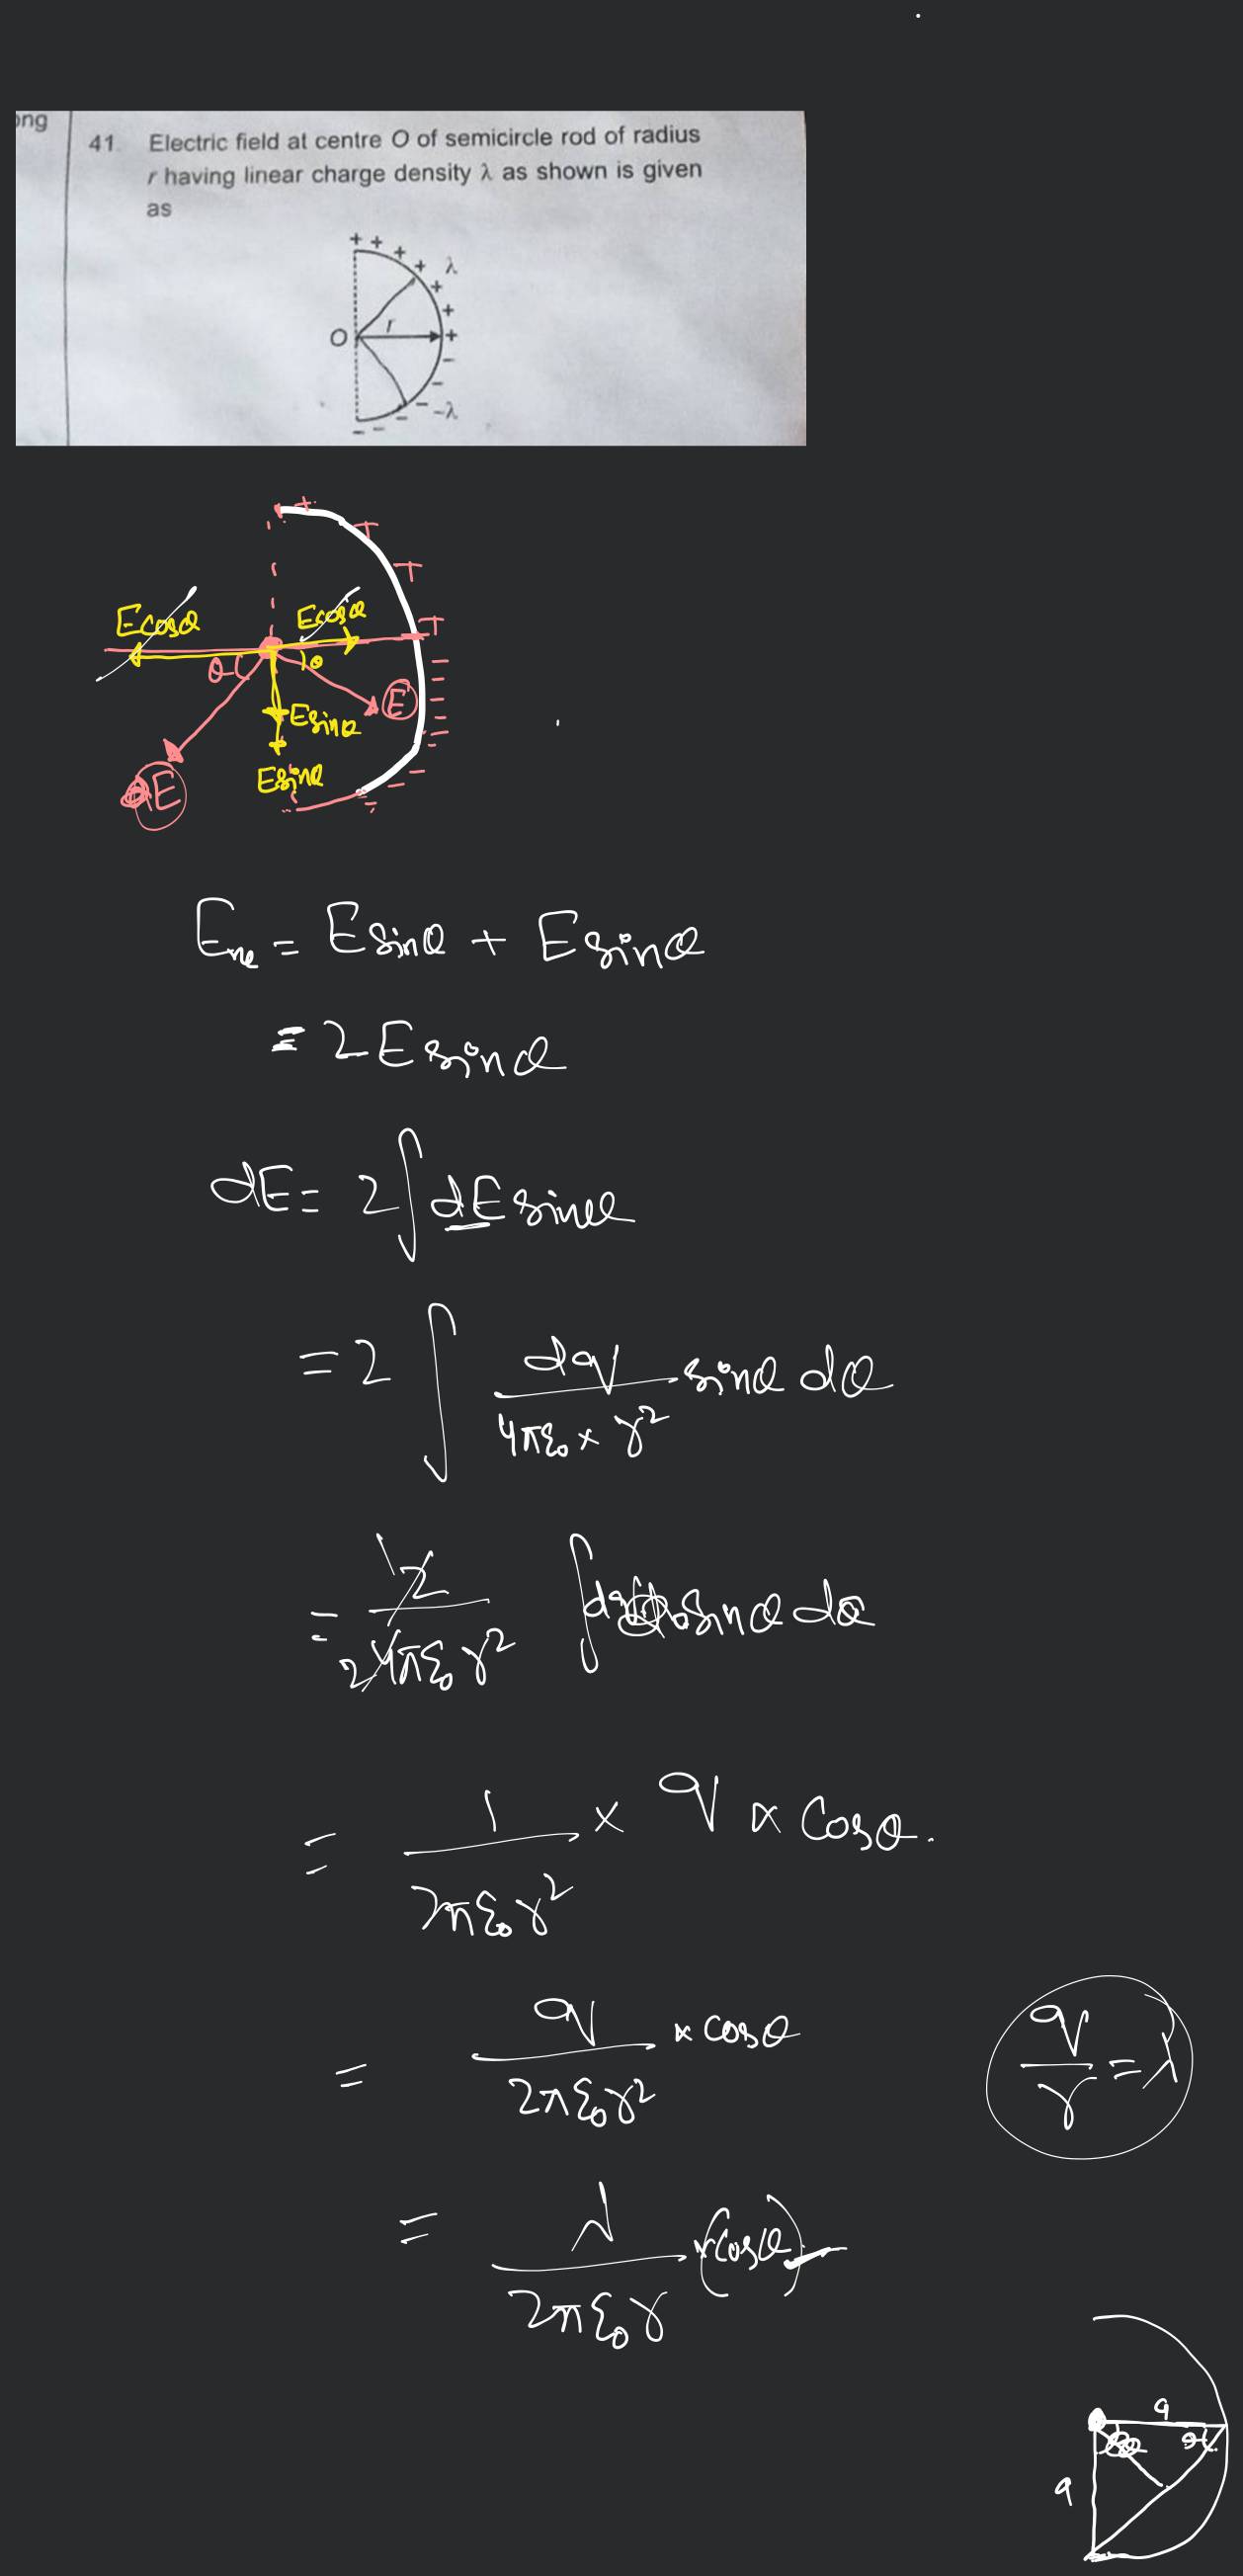 ong
41. Electric field at centre O of semicircle rod of radius
r having linear charge density λ as shown is given
as
+ + + + λ
+
+
O r +
−
−
− −λ
− − −
Ecosθ Ecosθ
θ θ
E
Esinθ
E Esinθ
E_ne = E sinθ + E sinθ
= 2 E sinθ
dE = 2∫dE sinθ
= 2 ∫ dq/(4πε₀ × r²) sinθ dθ
sinθ dθ
= 1/(2πε₀r²) × q × Cosθ.
= q/(2πε₀r²) × cosθ
q/r = λ
= λ/(2πε₀r) × (cosθ)
a
a